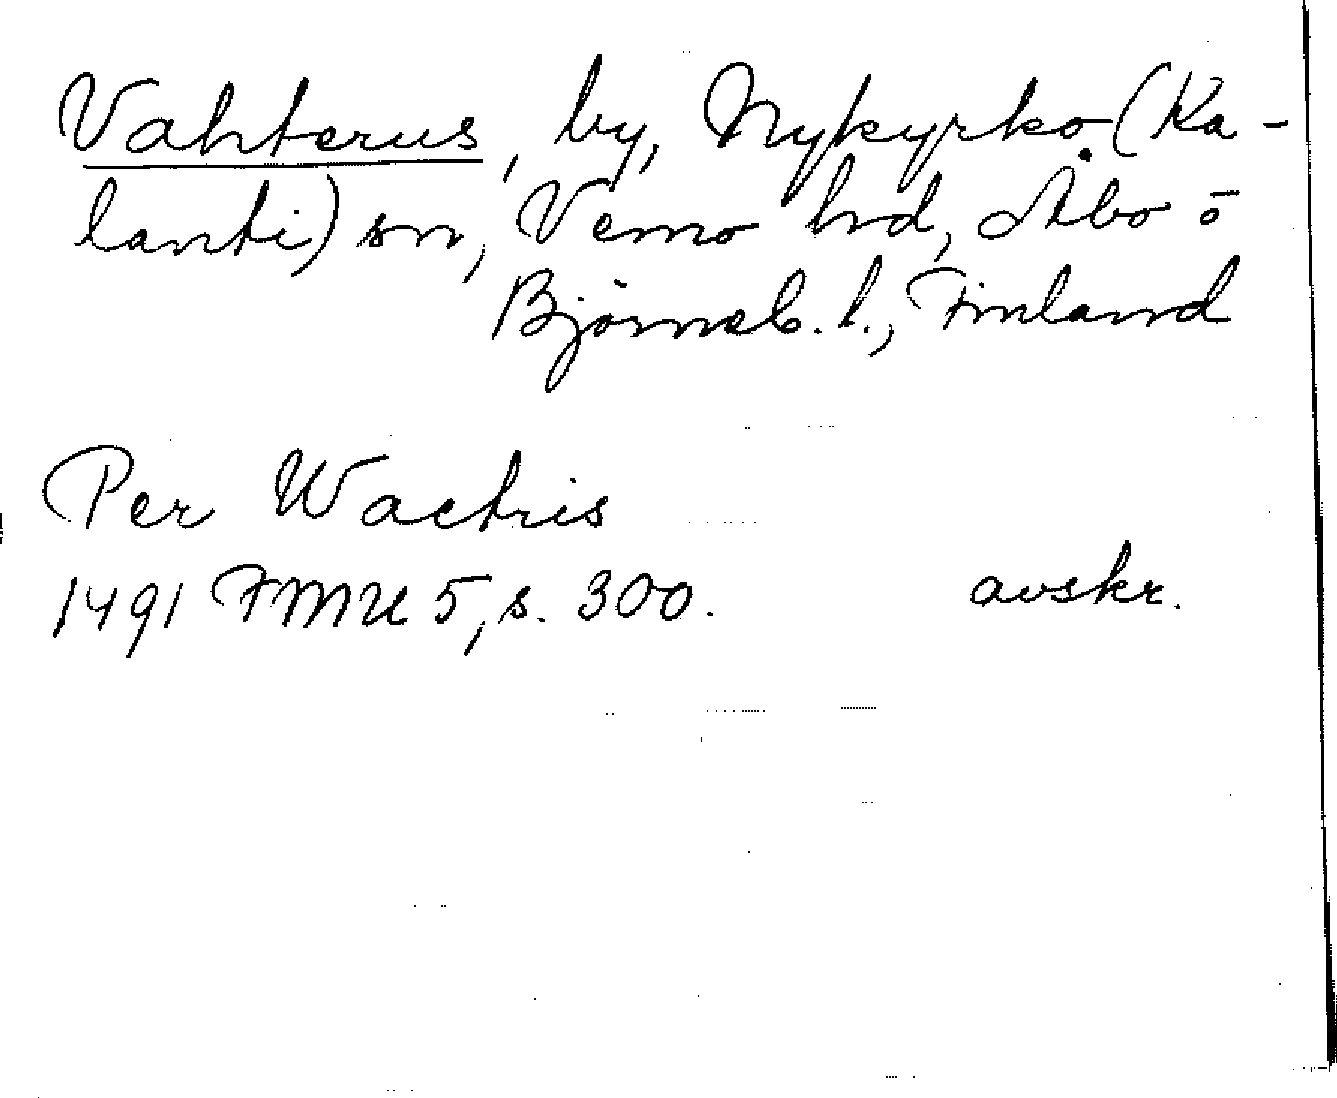 Vahterus, by, Nykyrko (Ka-
lanti) sn, Vemo hd, Åbo o
Björneb. l., Finland
Per Wactris
1491 FMU 5, s. 300. avskr.